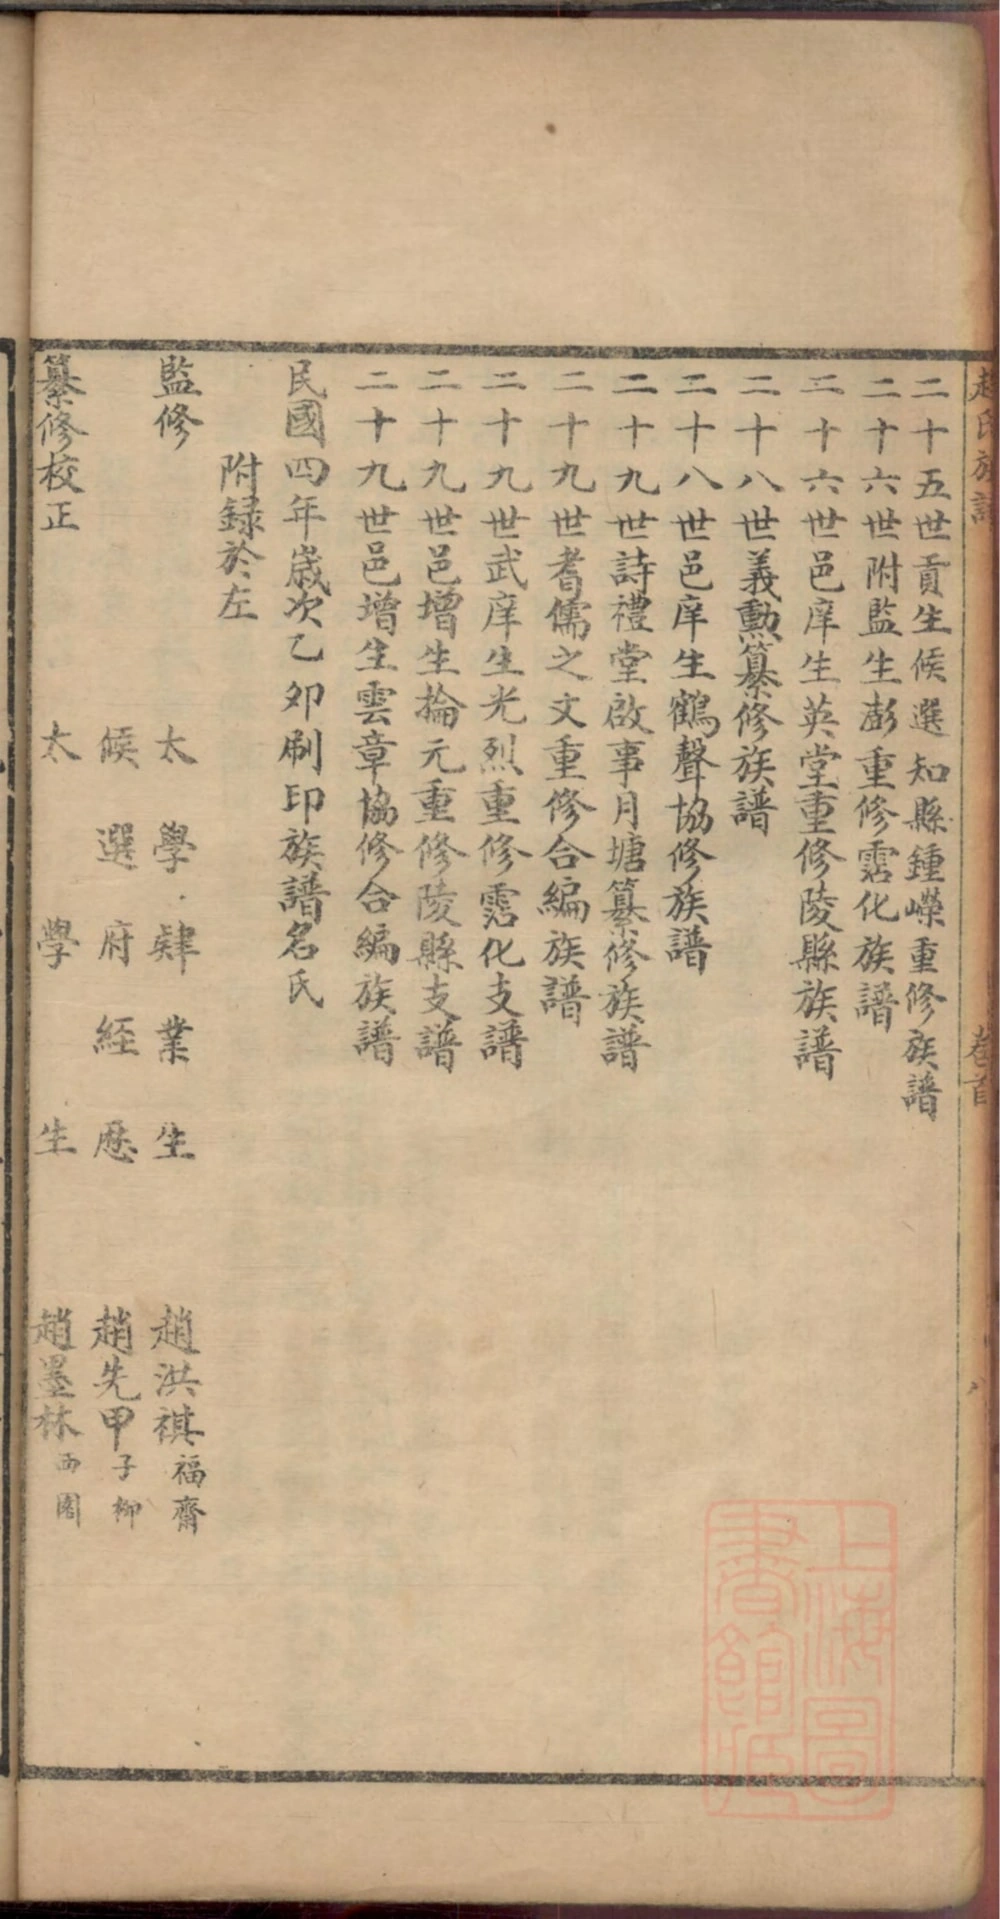 趙氏族譜 卷首 八
二十五世貢生候選知縣鍾嶸重修族譜
二十六世附監生澎重修霑化族譜
二十六世邑庠生英堂重修陵縣族譜
二十八世義勳纂修族譜
二十八世邑庠生鶴聲協修族譜
二十九世詩禮堂啟事月塘纂修族譜
二十九世耆儒之文重修合編族譜
二十九世武庠生光烈重修霑化支譜
二十九世邑增生掄元重修陵縣支譜
二十九世邑增生雲章協修合編族譜
民國四年歲次乙卯刷印族譜名氏
附録於左
監修 太學肄業生 趙洪祺福齋
候選府経歷 趙先甲子柳
纂修校正 太學生 趙墨林西園
上海圖書館藏